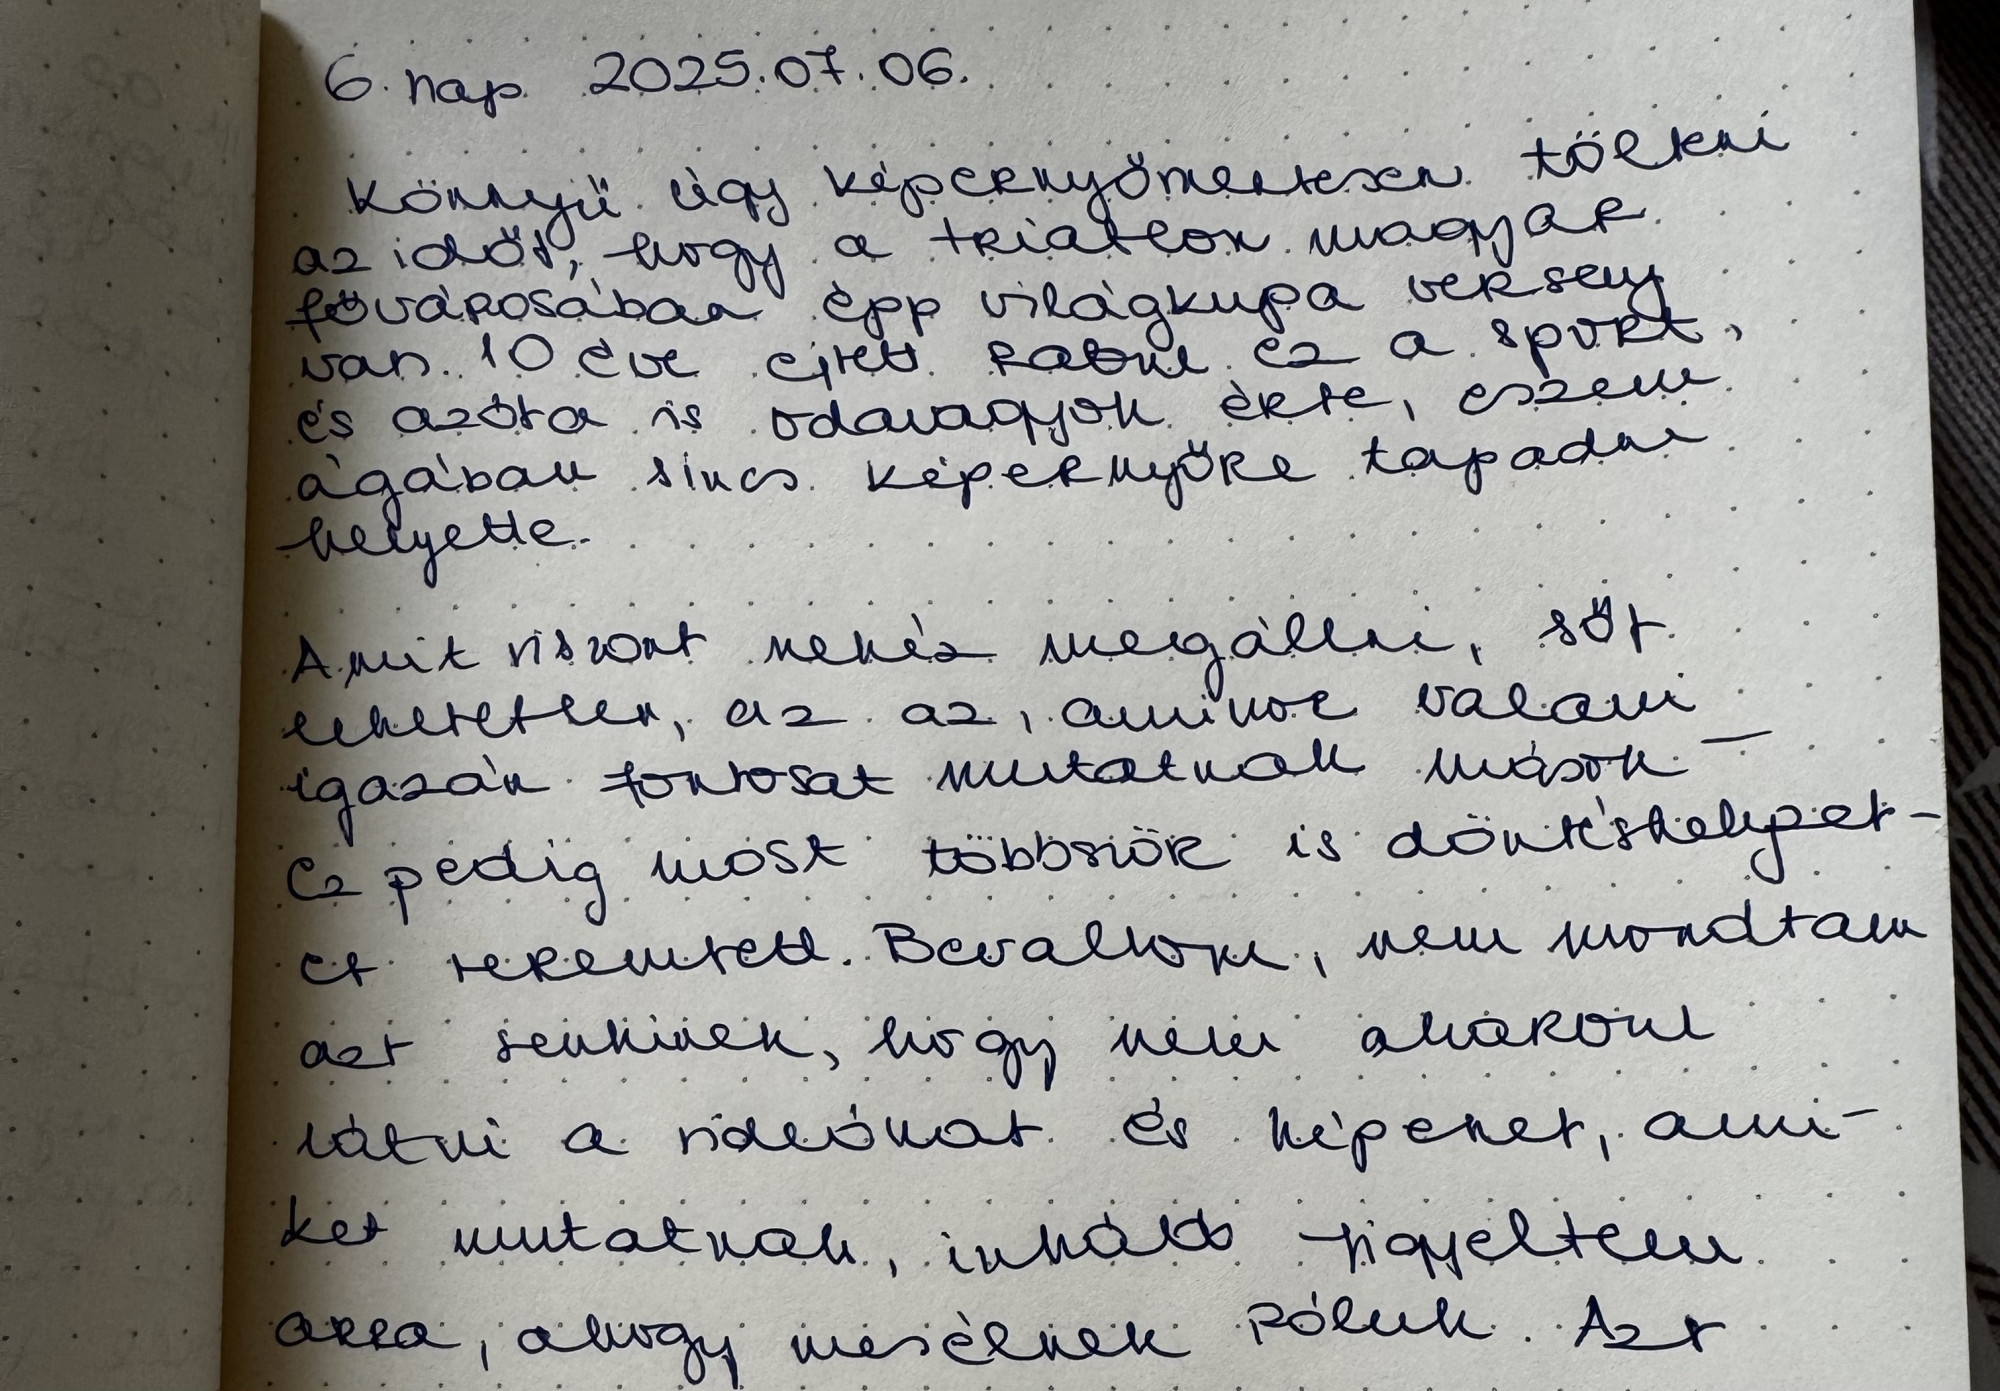 6. nap 2025.07.06.
Könnyű úgy képernyőmentesen tölteni
az időt, hogy a triatlon magyar
fővárosában épp világkupa verseny
van. 10 éve ejtett rabul ez a sport,
és azóta is odavagyok érte, eszem
ágában sincs képernyőre tapadni
helyette.
Amit viszont nehéz megállni, sőt
lehetetlen, az az, amikor valami
igazán fontosat mutatnak mások –
Ez pedig most többször is döntéshelyzet-
et teremtett. Bevallom, nem mondtam
azt senkinek, hogy nem akarom
látni a videókat és képeket, ami-
ket mutatnak, inkább figyeltem
arra, ahogy mesélnek róluk. Azt